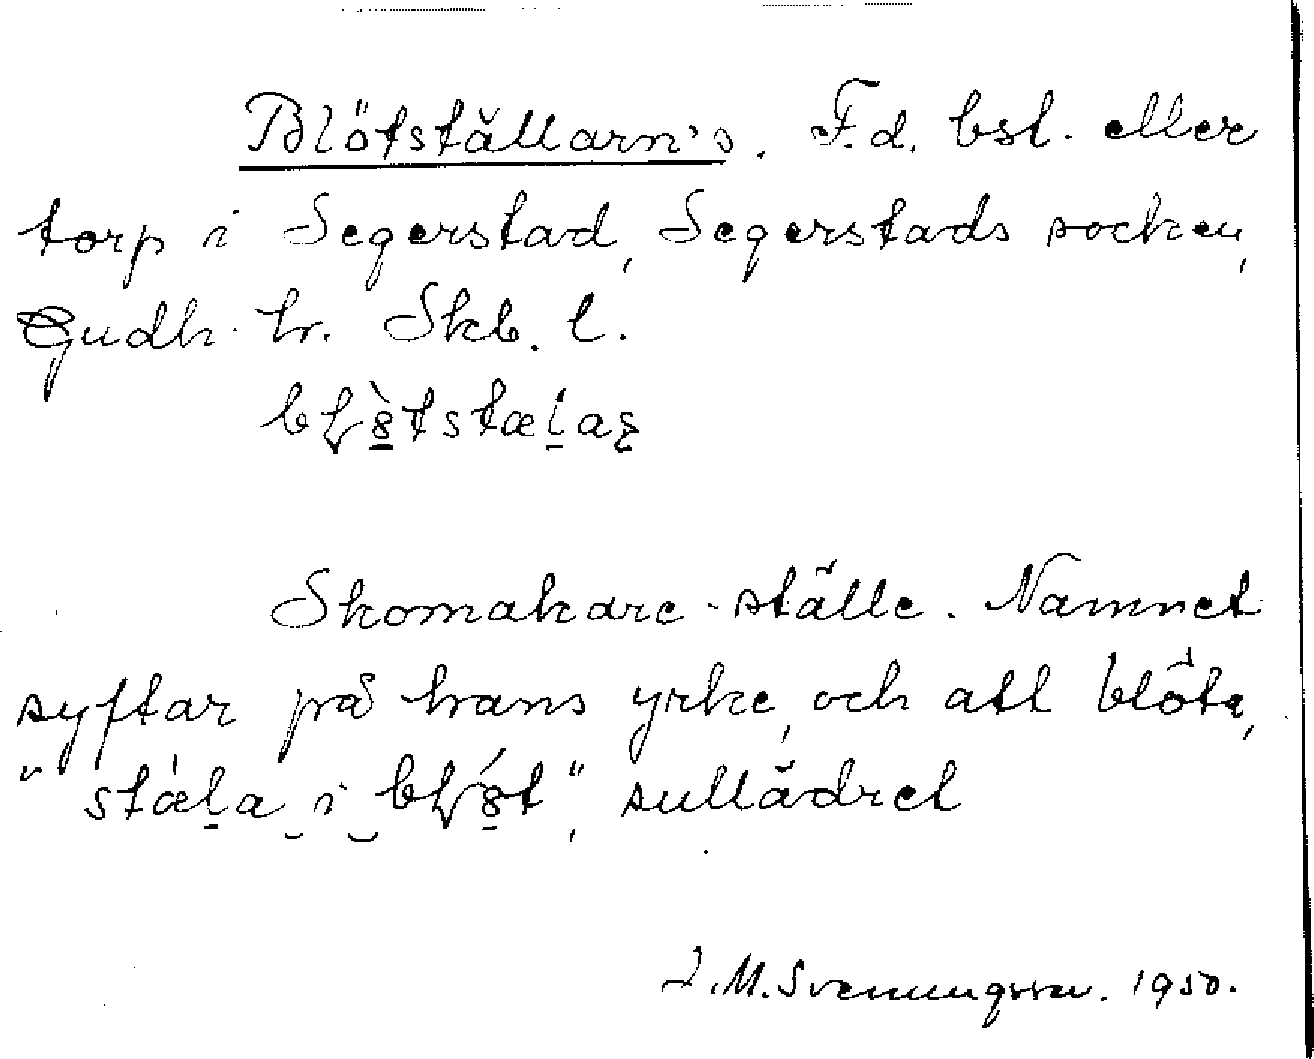 Blötställarn's. F.d. bst. eller
torp i Segerstad, Segerstads socken,
Gudh. hr. Skb. l.
Skomakare-ställe. Namnet
syftar på hans yrke, och att blöta,
sullädret
J.M. Svenungsson. 1950.